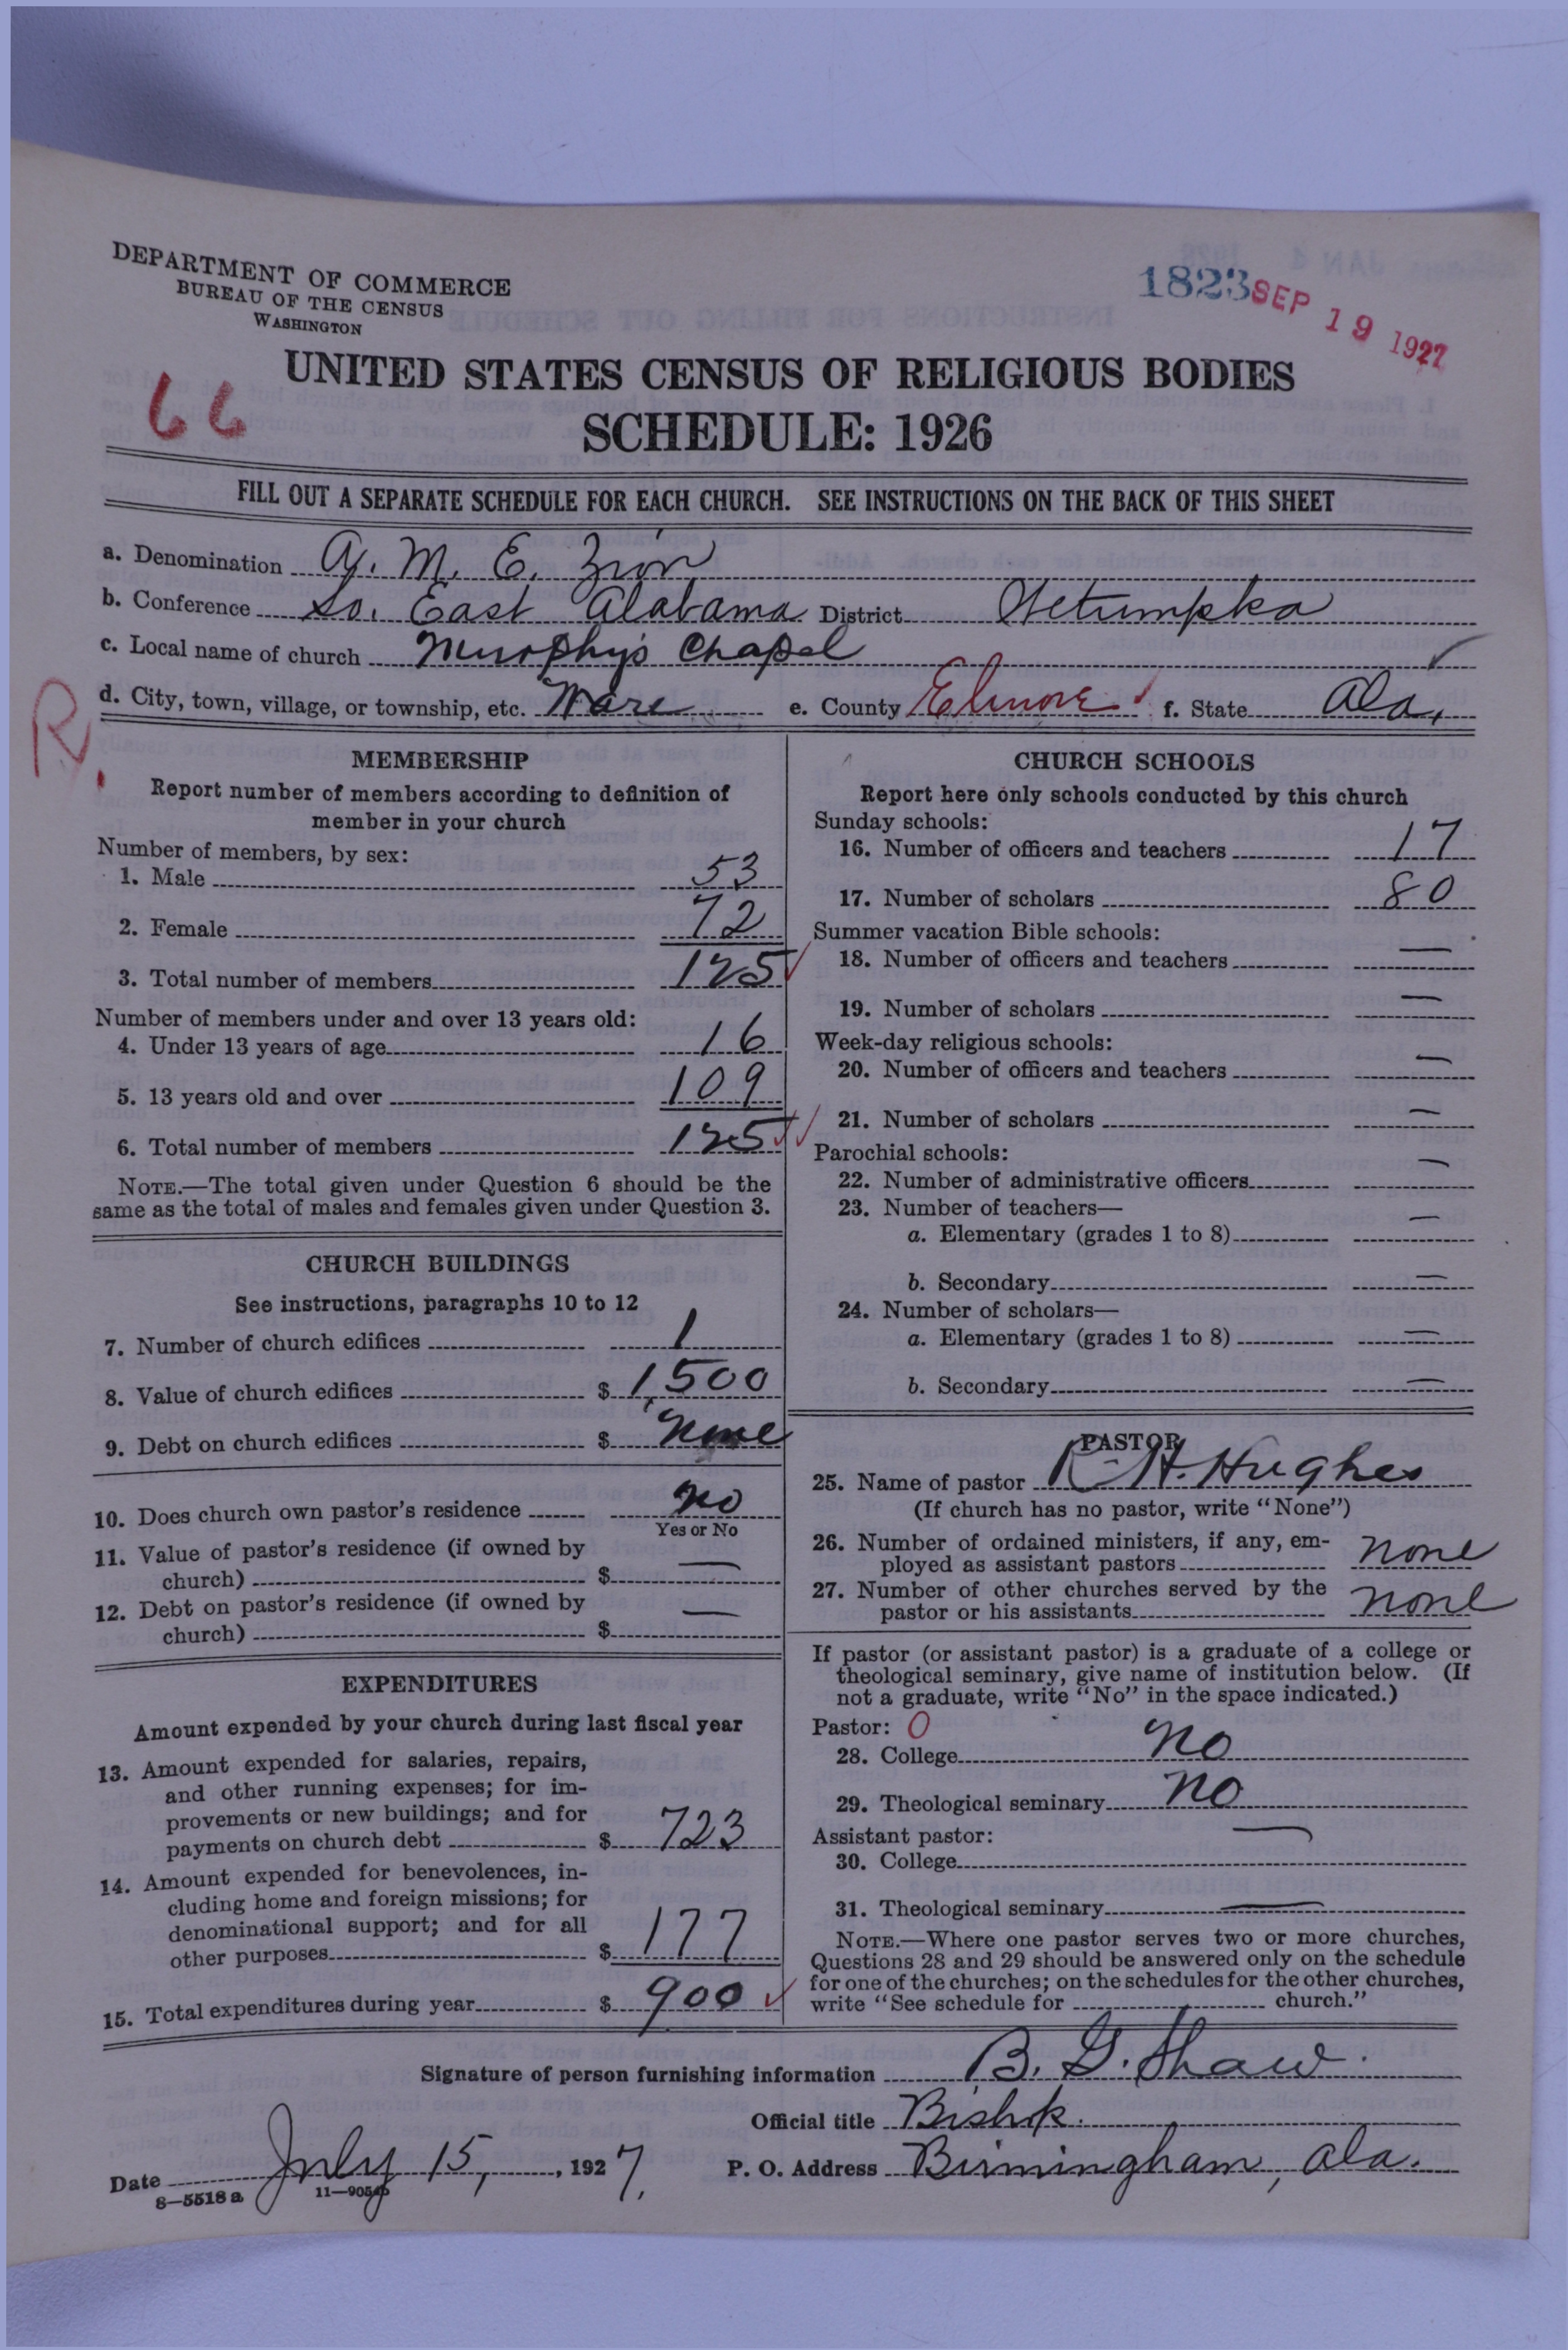 DEPARTMENT OF COMMERCE
BUREAU OF THE CENSUS
WASHINGTON
1823
SEP 19 1927
66
UNITED STATES CENSUS OF RELIGIOUS BODIES
SCHEDULE: 1926
FILL OUT A SEPARATE SCHEDULE FOR EACH CHURCH. SEE INSTRUCTIONS ON THE BACK OF THIS SHEET
a. Denomination A. M. E. Zion
b. Conference So. East Alabama District Wetumpka
c. Local name of church Murophy's Chapel
d. City, town, village, or township, etc. Ware e. County Elmore f. State Ala.
R.
MEMBERSHIP
Report number of members according to definition of
member in your church
Number of members, by sex:
1. Male 53
2. Female 72
3. Total number of members 125
Number of members under and over 13 years old:
4. Under 13 years of age 16
5. 13 years old and over 109
6. Total number of members 125
NOTE.—The total given under Question 6 should be the
same as the total of males and females given under Question 3.
CHURCH BUILDINGS
See instructions, paragraphs 10 to 12
7. Number of church edifices 1
8. Value of church edifices $ 1,500
9. Debt on church edifices $ none
10. Does church own pastor's residence no
Yes or No
11. Value of pastor's residence (if owned by
church) $ —
12. Debt on pastor's residence (if owned by
church) $ —
EXPENDITURES
Amount expended by your church during last fiscal year
13. Amount expended for salaries, repairs,
and other running expenses; for im-
provements or new buildings; and for
payments on church debt $ 723
14. Amount expended for benevolences, in-
cluding home and foreign missions; for
denominational support; and for all
other purposes $ 177
15. Total expenditures during year $ 900
CHURCH SCHOOLS
Report here only schools conducted by this church
Sunday schools:
16. Number of officers and teachers 17
17. Number of scholars 80
Summer vacation Bible schools:
18. Number of officers and teachers —
19. Number of scholars —
Week-day religious schools:
20. Number of officers and teachers —
21. Number of scholars —
Parochial schools:
22. Number of administrative officers —
23. Number of teachers—
a. Elementary (grades 1 to 8) —
b. Secondary —
24. Number of scholars—
a. Elementary (grades 1 to 8) —
b. Secondary —
PASTOR
25. Name of pastor R. H. Hughes
(If church has no pastor, write "None")
26. Number of ordained ministers, if any, em-
ployed as assistant pastors none
27. Number of other churches served by the
pastor or his assistants none
If pastor (or assistant pastor) is a graduate of a college or
theological seminary, give name of institution below. (If
not a graduate, write "No" in the space indicated.)
Pastor: 0
28. College no
29. Theological seminary no
Assistant pastor: —
30. College
31. Theological seminary —
NOTE.—Where one pastor serves two or more churches,
Questions 28 and 29 should be answered only on the schedule
for one of the churches; on the schedules for the other churches,
write "See schedule for church."
Signature of person furnishing information B. G. Shaw.
Official title Bishop.
Date July 15, 1927. P. O. Address Birmingham, Ala.
8—5518 a 11—9054b